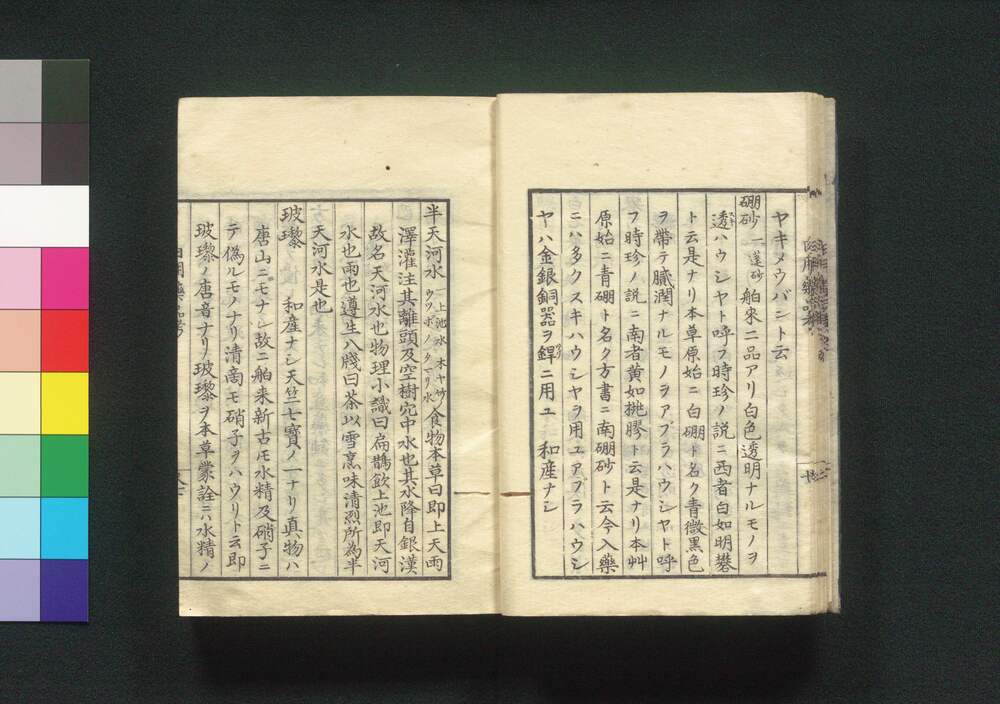 ヤキメウバント云
硼砂 一蓬砂 舶来二品アリ白色透明ナルモノヲ
透ハウシヤト呼フ時珍ノ説ニ西者白如明礬
ト云是ナリ本草原始ニ白硼ト名ク青微黒色
ヲ帯テ膩潤ナルモノヲアブラハウシヤト呼
フ時珍ノ説ニ南者黄如桃膠ト云是ナリ本艸
原始ニ青硼ト名ク方書ニ南硼砂ト云今入藥
ニハ多クスキハウシヤヲ用ユアブラハウシ
ヤハ金銀銅器ヲ銲ニ用ユ 和産ナシ
半天河水 一上池水 木ヤリ ウツボノタマリ水 食物本草曰即上天雨
澤灌注其離頭及空樹穴中水也其水降自銀漢
故名天河水也物理小識曰扁鵲飲上池即天河
水也雨也遵生八牋曰茶以雪烹味清烈所為半
天河水是也
玻瓈 和産ナシ天竺七寳ノ一ナリ真物ハ
唐山ニモナシ故ニ舶来新古モ水精及硝子ニ
テ偽ルモノナリ清商モ硝子ヲハウリト云即
玻瓈ノ唐音ナリ玻瓈ヲ本草蒙詮ニハ水精ノ